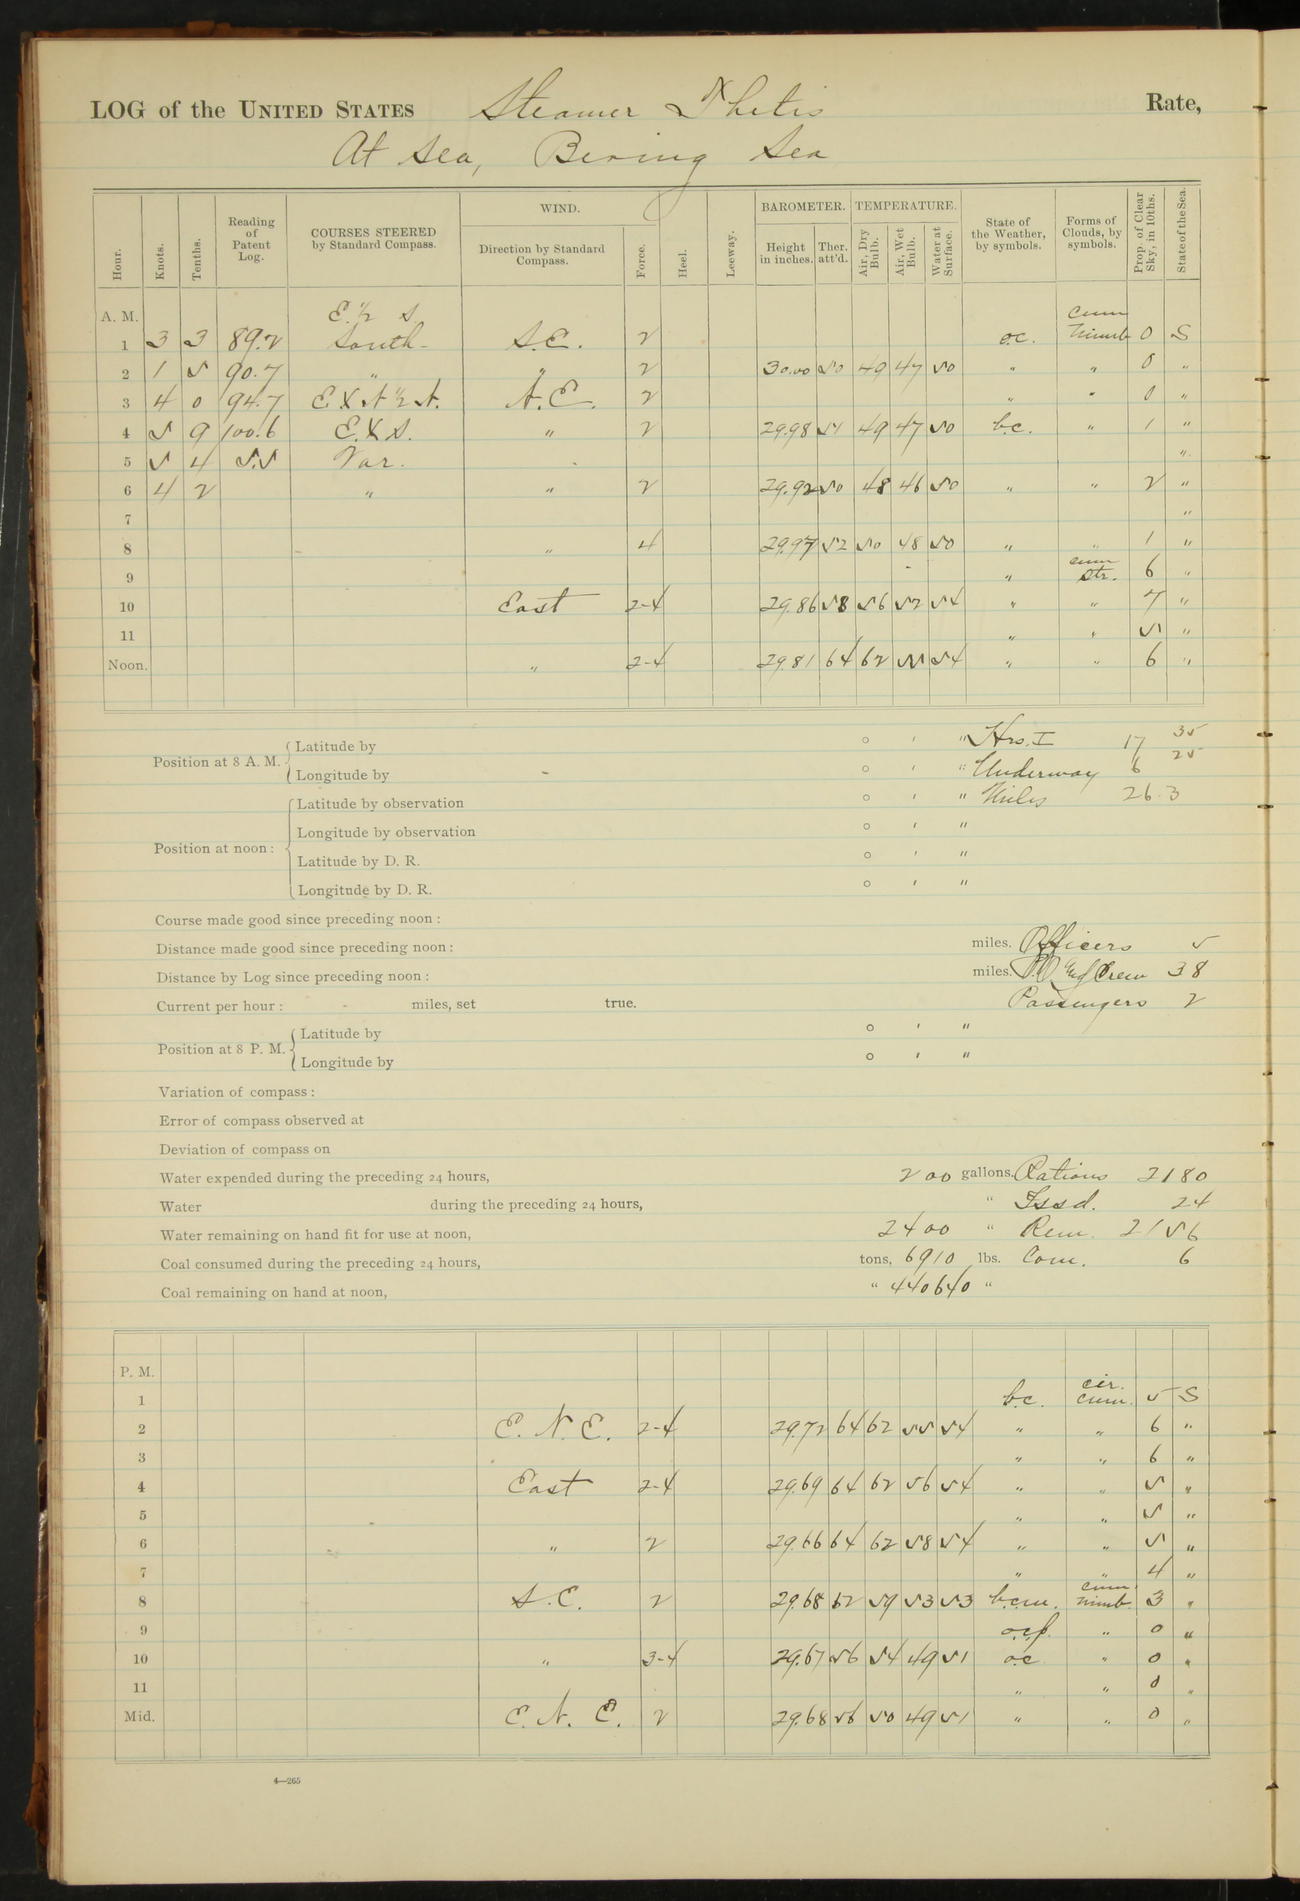 LOG of the UNITED STATES Steamer Thetis Rate,
At Sea, Bering Sea
Hour. Knots. Tenths. Reading of Patent Log. COURSES STEERED by Standard Compass. WIND. Direction by Standard Compass. Force. Heel. Leeway. BAROMETER. Height in inches. Ther. att'd. TEMPERATURE. Air, Dry Bulb. Air, Wet Bulb. Water at Surface. State of the Weather, by symbols. Forms of Clouds, by symbols. Prop. of Clear Sky, in 10ths. State of the Sea.
A. M. E. ½ S. cum
1 3 3 89.2 South S.E. 2 o.c. Nimb 0 S
2 1 5 90.7 " " 2 30.00 50 49 47 50 " " 0 "
3 4 0 94.7 E X N ½ N. N.E. 2 " " 0 "
4 5 9 100.6 E. X S. " 2 29.98 51 49 47 50 b.c. " 1 "
5 5 4 5.5 Var. "
6 4 2 " " 2 29.92 50 48 46 50 " " 2 "
7 "
8 " 4 29.97 52 50 48 50 " " 1 "
9 " cum Str. 6 "
10 East 2-4 29.86 58 56 52 54 " " 7 "
11 " " 5 "
Noon. " 2-4 29.81 64 62 55 54 " " 6 "
Position at 8 A. M. Latitude by ° ' " Hrs. I 17 35
Longitude by ° ' " Underway 6 25
Position at noon: Latitude by observation ° ' " Miles 26.3
Longitude by observation ° ' "
Latitude by D. R. ° ' "
Longitude by D. R. ° ' "
Course made good since preceding noon:
Distance made good since preceding noon: miles. Officers 5
Distance by Log since preceding noon: miles. Crew 38
Current per hour: miles, set true. Passengers 2
Position at 8 P. M. Latitude by ° ' "
Longitude by ° ' "
Variation of compass:
Error of compass observed at
Deviation of compass on
Water expended during the preceding 24 hours, 200 gallons. Rations 2180
Water during the preceding 24 hours, " Issd. 24
Water remaining on hand fit for use at noon, 2400 " Rem. 2156
Coal consumed during the preceding 24 hours, tons, 6910 lbs. Com. 6
Coal remaining on hand at noon, " 440640 "
P. M.
1 b.c. cir. cum. 5 S
2 E. N. E. 2-4 29.72 64 62 55 54 " " 6 "
3 " " 6 "
4 East 2-4 29.69 64 62 56 54 " " 5 "
5 " " 5 "
6 " 2 29.66 64 62 58 54 " " 5 "
7 " " 4 "
8 S.E. 2 29.68 62 59 53 53 b.c.m. cum. nimb. 3 "
9 o.c.p. " 0 "
10 " 3-4 29.67 56 54 49 51 o.c " 0 "
11 " " 0 "
Mid. E. N. E. 2 29.68 56 50 49 51 " " 0 "
4—265